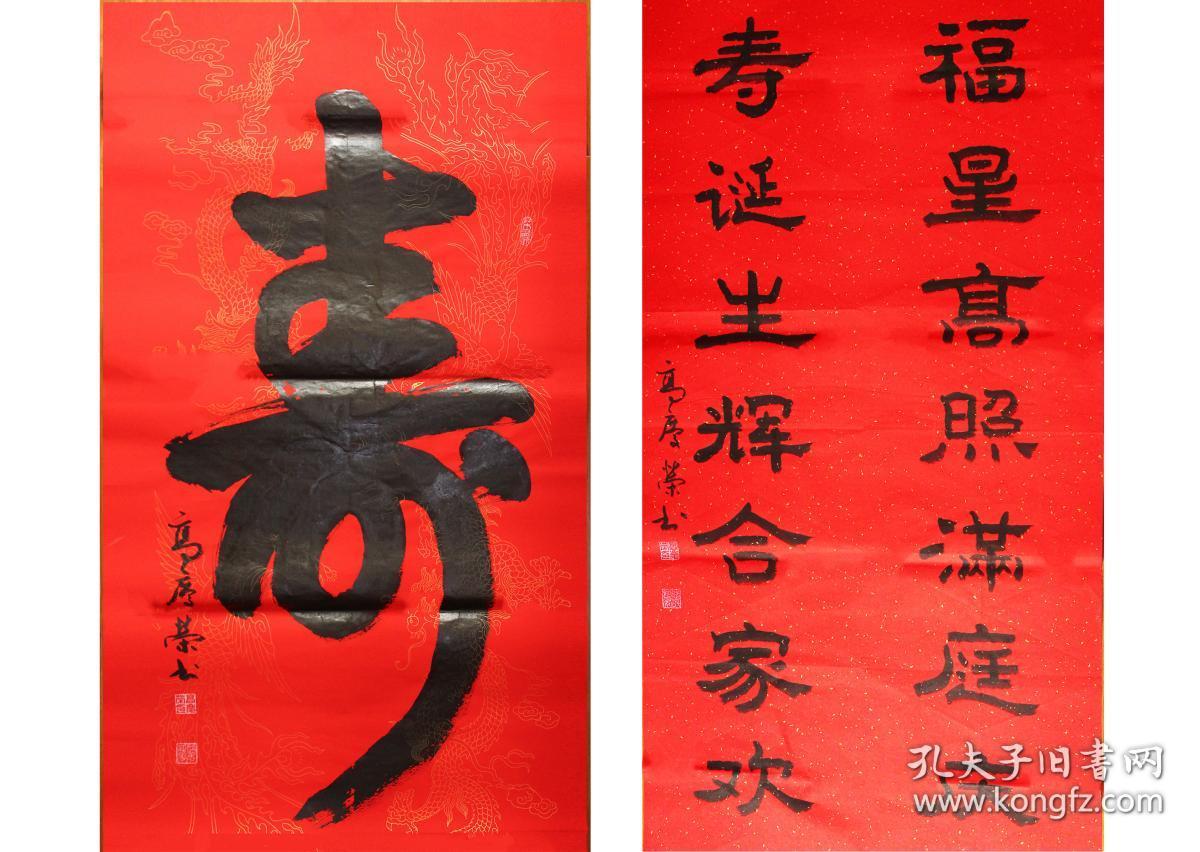 寿
高
榮书
福星髙照满庭
寿诞生辉合家欢
高
榮书
孔夫子旧书网
www.kongfz.com